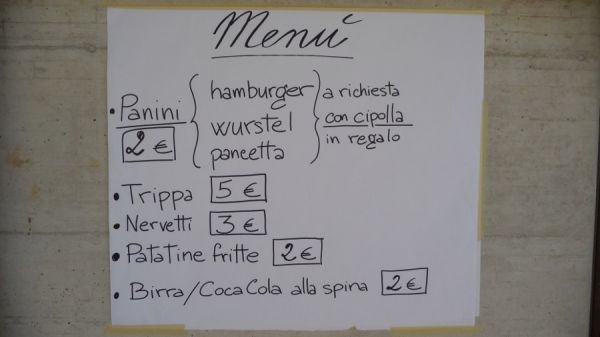 Menú
• Panini
2 €
hamburger
wurstel
pancetta
a richiesta
con cipolla
in regalo
• Trippa 5 €
• Nervetti 3 €
• Patatine fritte 2 €
• Birra/CocaCola alla spina 2 €